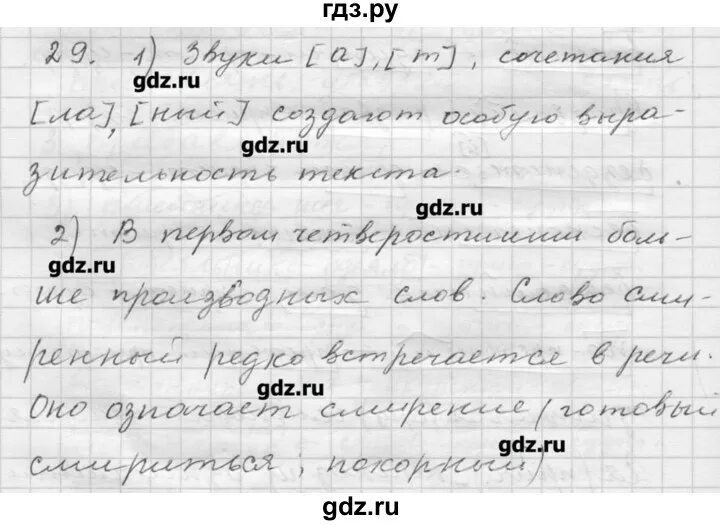 гдз.ру
29. 1) Звуки [а], [т], сочетания
[ла], [ный] создают особую выра-
gdz.ru
зительность текста.
gdz.ru
2) В первом четверостишии боль-
gdz.ru
ше производных слов. Слово сми-
ренный редко встречается в речи.
gdz.ru
Оно означает смирение (готовый
gdz.ru
смириться, покорный)
gdz.ru